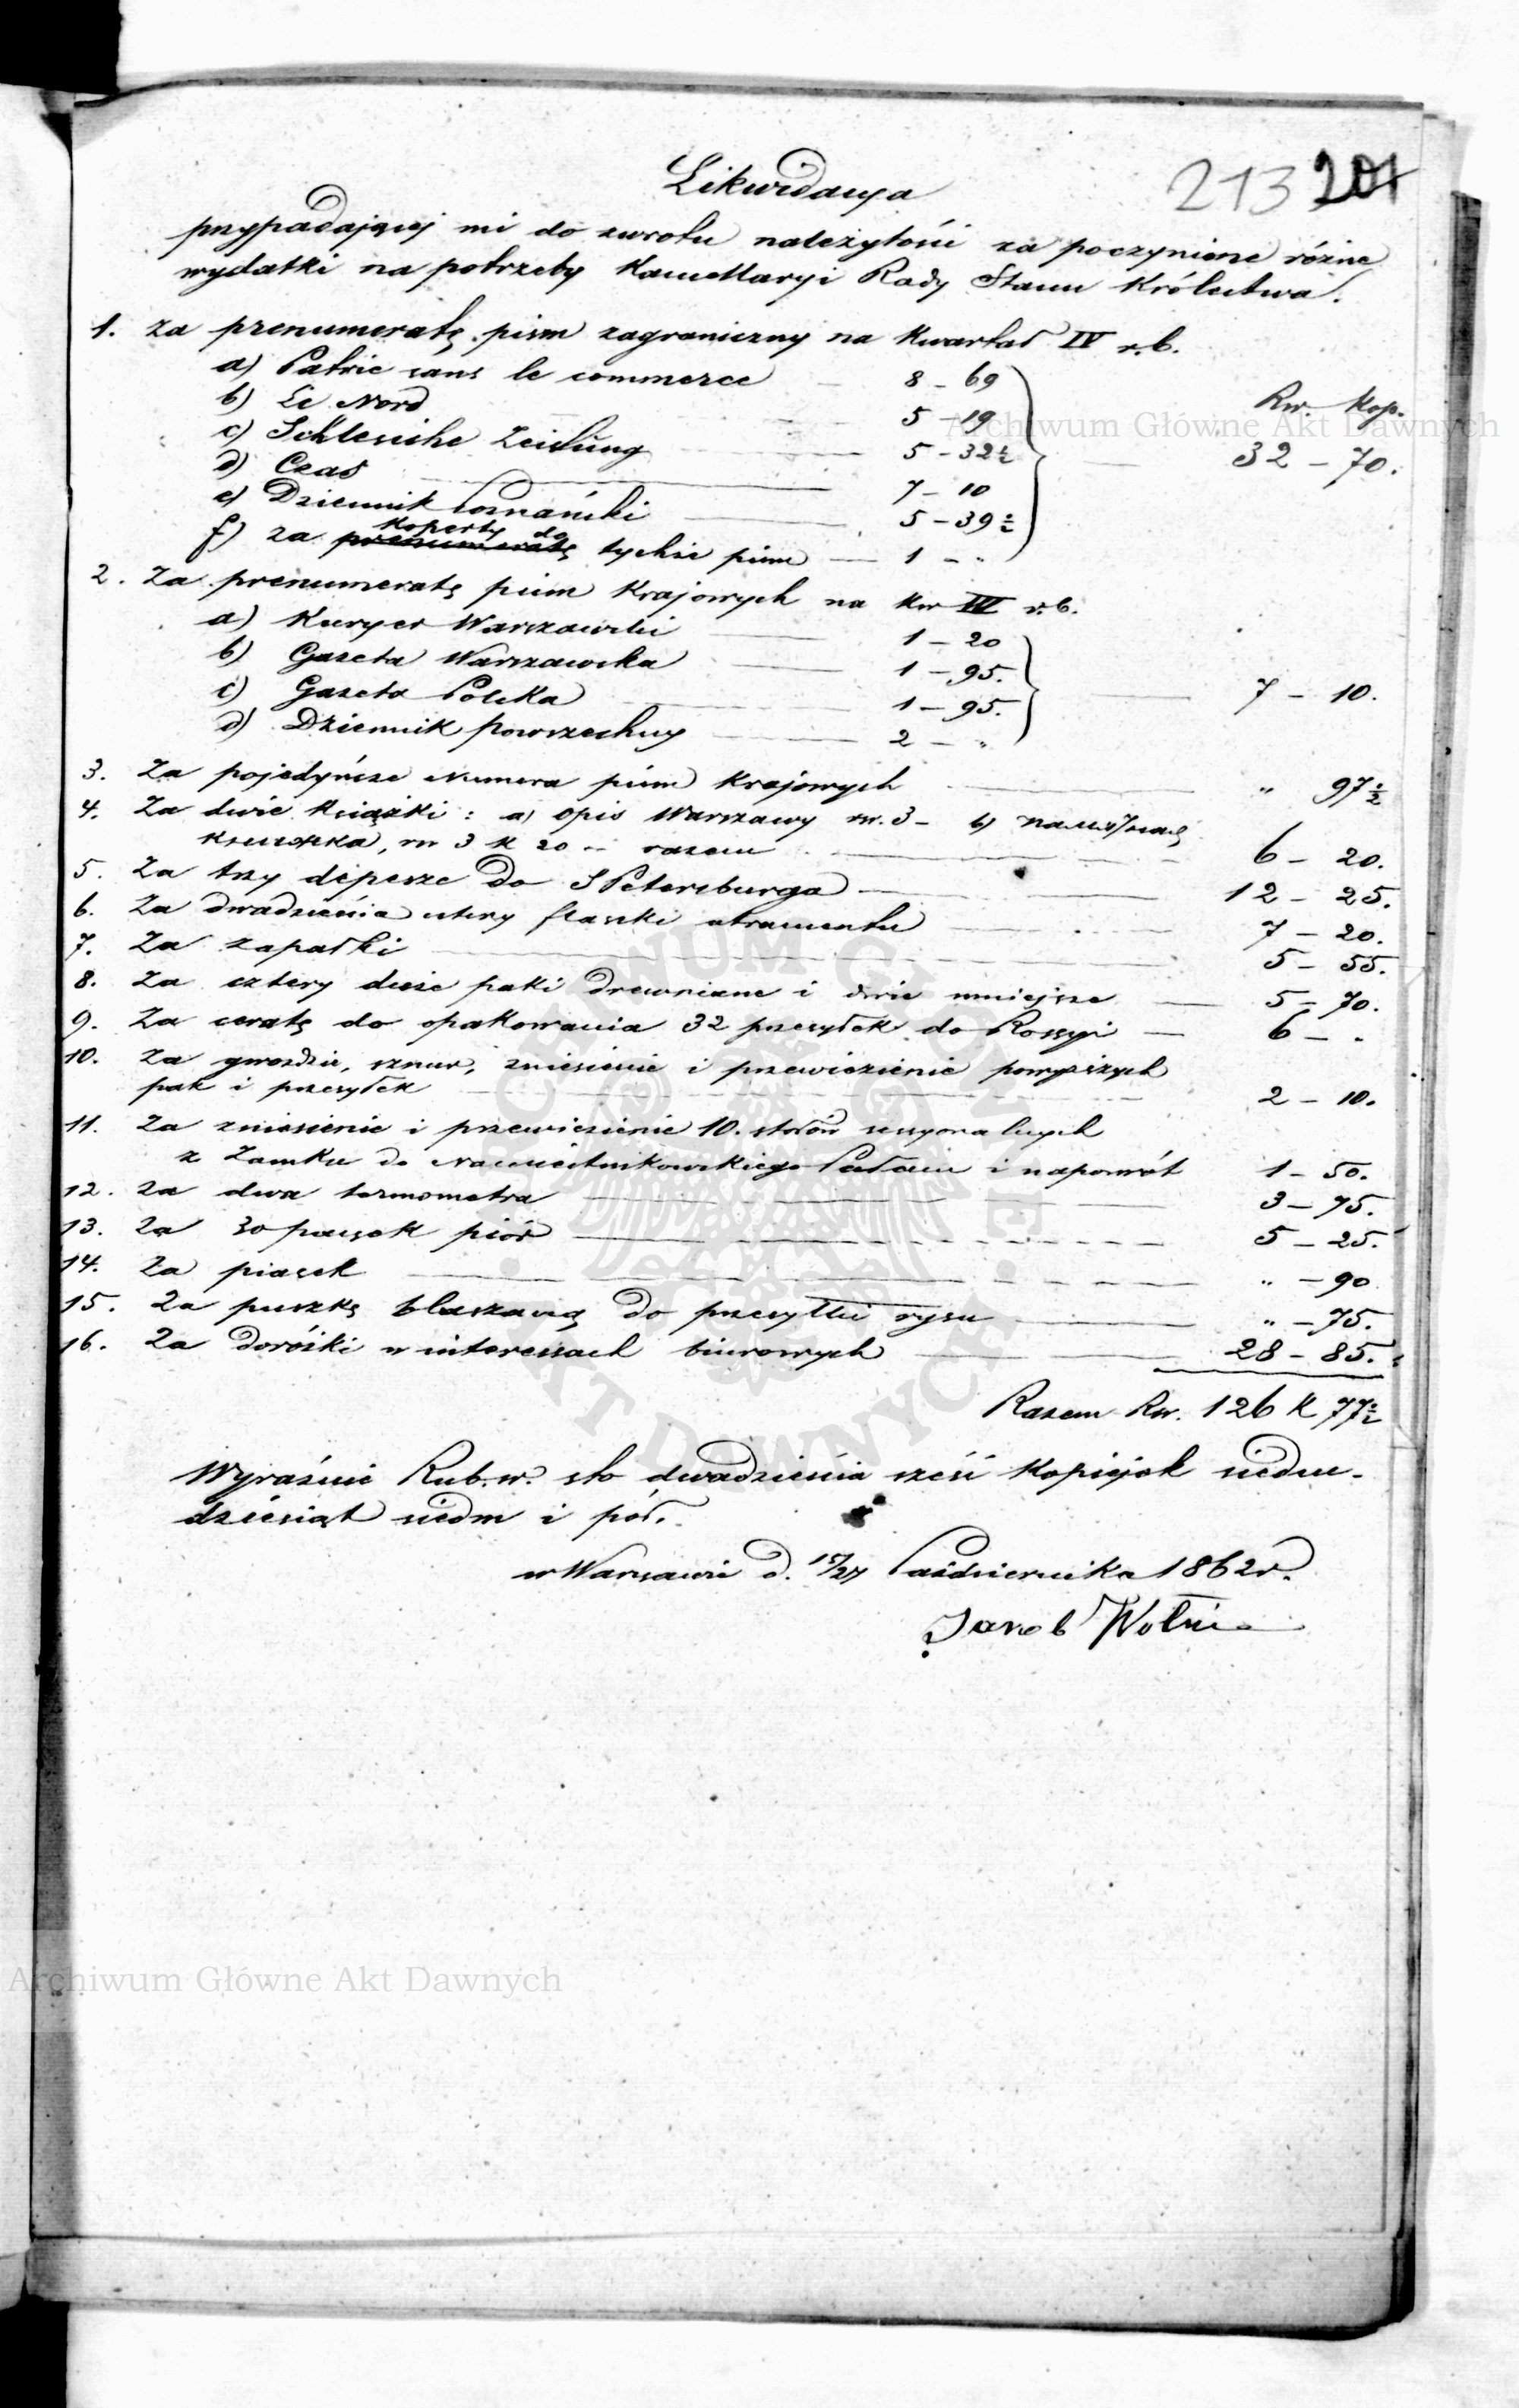 213 201
Likwidacya
przypadającej mi do zwrotu należytości za poczynione różne
wydatki na potrzeby Kancellaryi Rady Stanu Królestwa.
1. Za prenumeratę pism zagraniczny na Kwartał IV r.b.
a) Patrie sans le commerce — 8 – 69
Rsr. Kop.
b) Le Nord 5 – 19
c) Schlesische Zeitung — 5 – 32½
32 – 70.
d) Czas — 7 – 10
e) Dziennik Poznański — 5 – 39½
koperty do
f) Za prenumeratę tychże pism — 1 – "
2. Za prenumeratę pism Krajowych na Kw IV r.b.
a) Kuryer Warszawski — 1 – 20
b) Gazeta Warszawska — 1 – 95.
c) Gazeta Polska — 1 – 95.
7 – 10.
d) Dziennik powszechny — 2 – "
3. Za pojedyńcze Numera pism Krajowych — " 97½
4. Za dwie książki: a) Opis Warszawy rsr. 3 – b)
rsr 3 k 20 – razem — 6 – 20.
5. Za trzy depesze do S Petersburga — 12 – 25.
6. Za dwadzieścia cztery flaszki atramentu — 7 – 20.
7. Za zapałki — 5 – 55.
8. Za cztery duże paki drewniane i dwie mniejsze — 5 – 70.
9. Za ceratę do opakowania 32 przesyłek do Rossyi — 6 – "
10. Za gwoździe, sznur, zniesienie i przewiezienie powyższych
pak i przesyłek — 2 – 10.
11. Za zniesienie i przewiezienie 10. stołów sessyonalnych
z Zamku do Namiestnikowskiego Pałacu i napowrót 1 – 50.
12. Za dwa termometra — 3 – 75.
13. Za 30 paczek piór — 5 – 25.
14. Za piasek — " – 90
15. Za puszkę blaszaną do przesyłki rysu — " – 75.
16. Za dorożki w interessach biurowych — 28 – 85.
Razem Rsr. 126 K 77½
Wyraźnie Rub. sr. sto dwadzieścia sześć Kopiejek siedm-
dziesiąt siedm i pół.
w Warszawie d. 15/27 Października 1862 r.
Jakob
Archiwum Główne Akt Dawnych
Archiwum Główne Akt Dawnych
ARCHIWUM GŁÓWNE AKT DAWNYCH